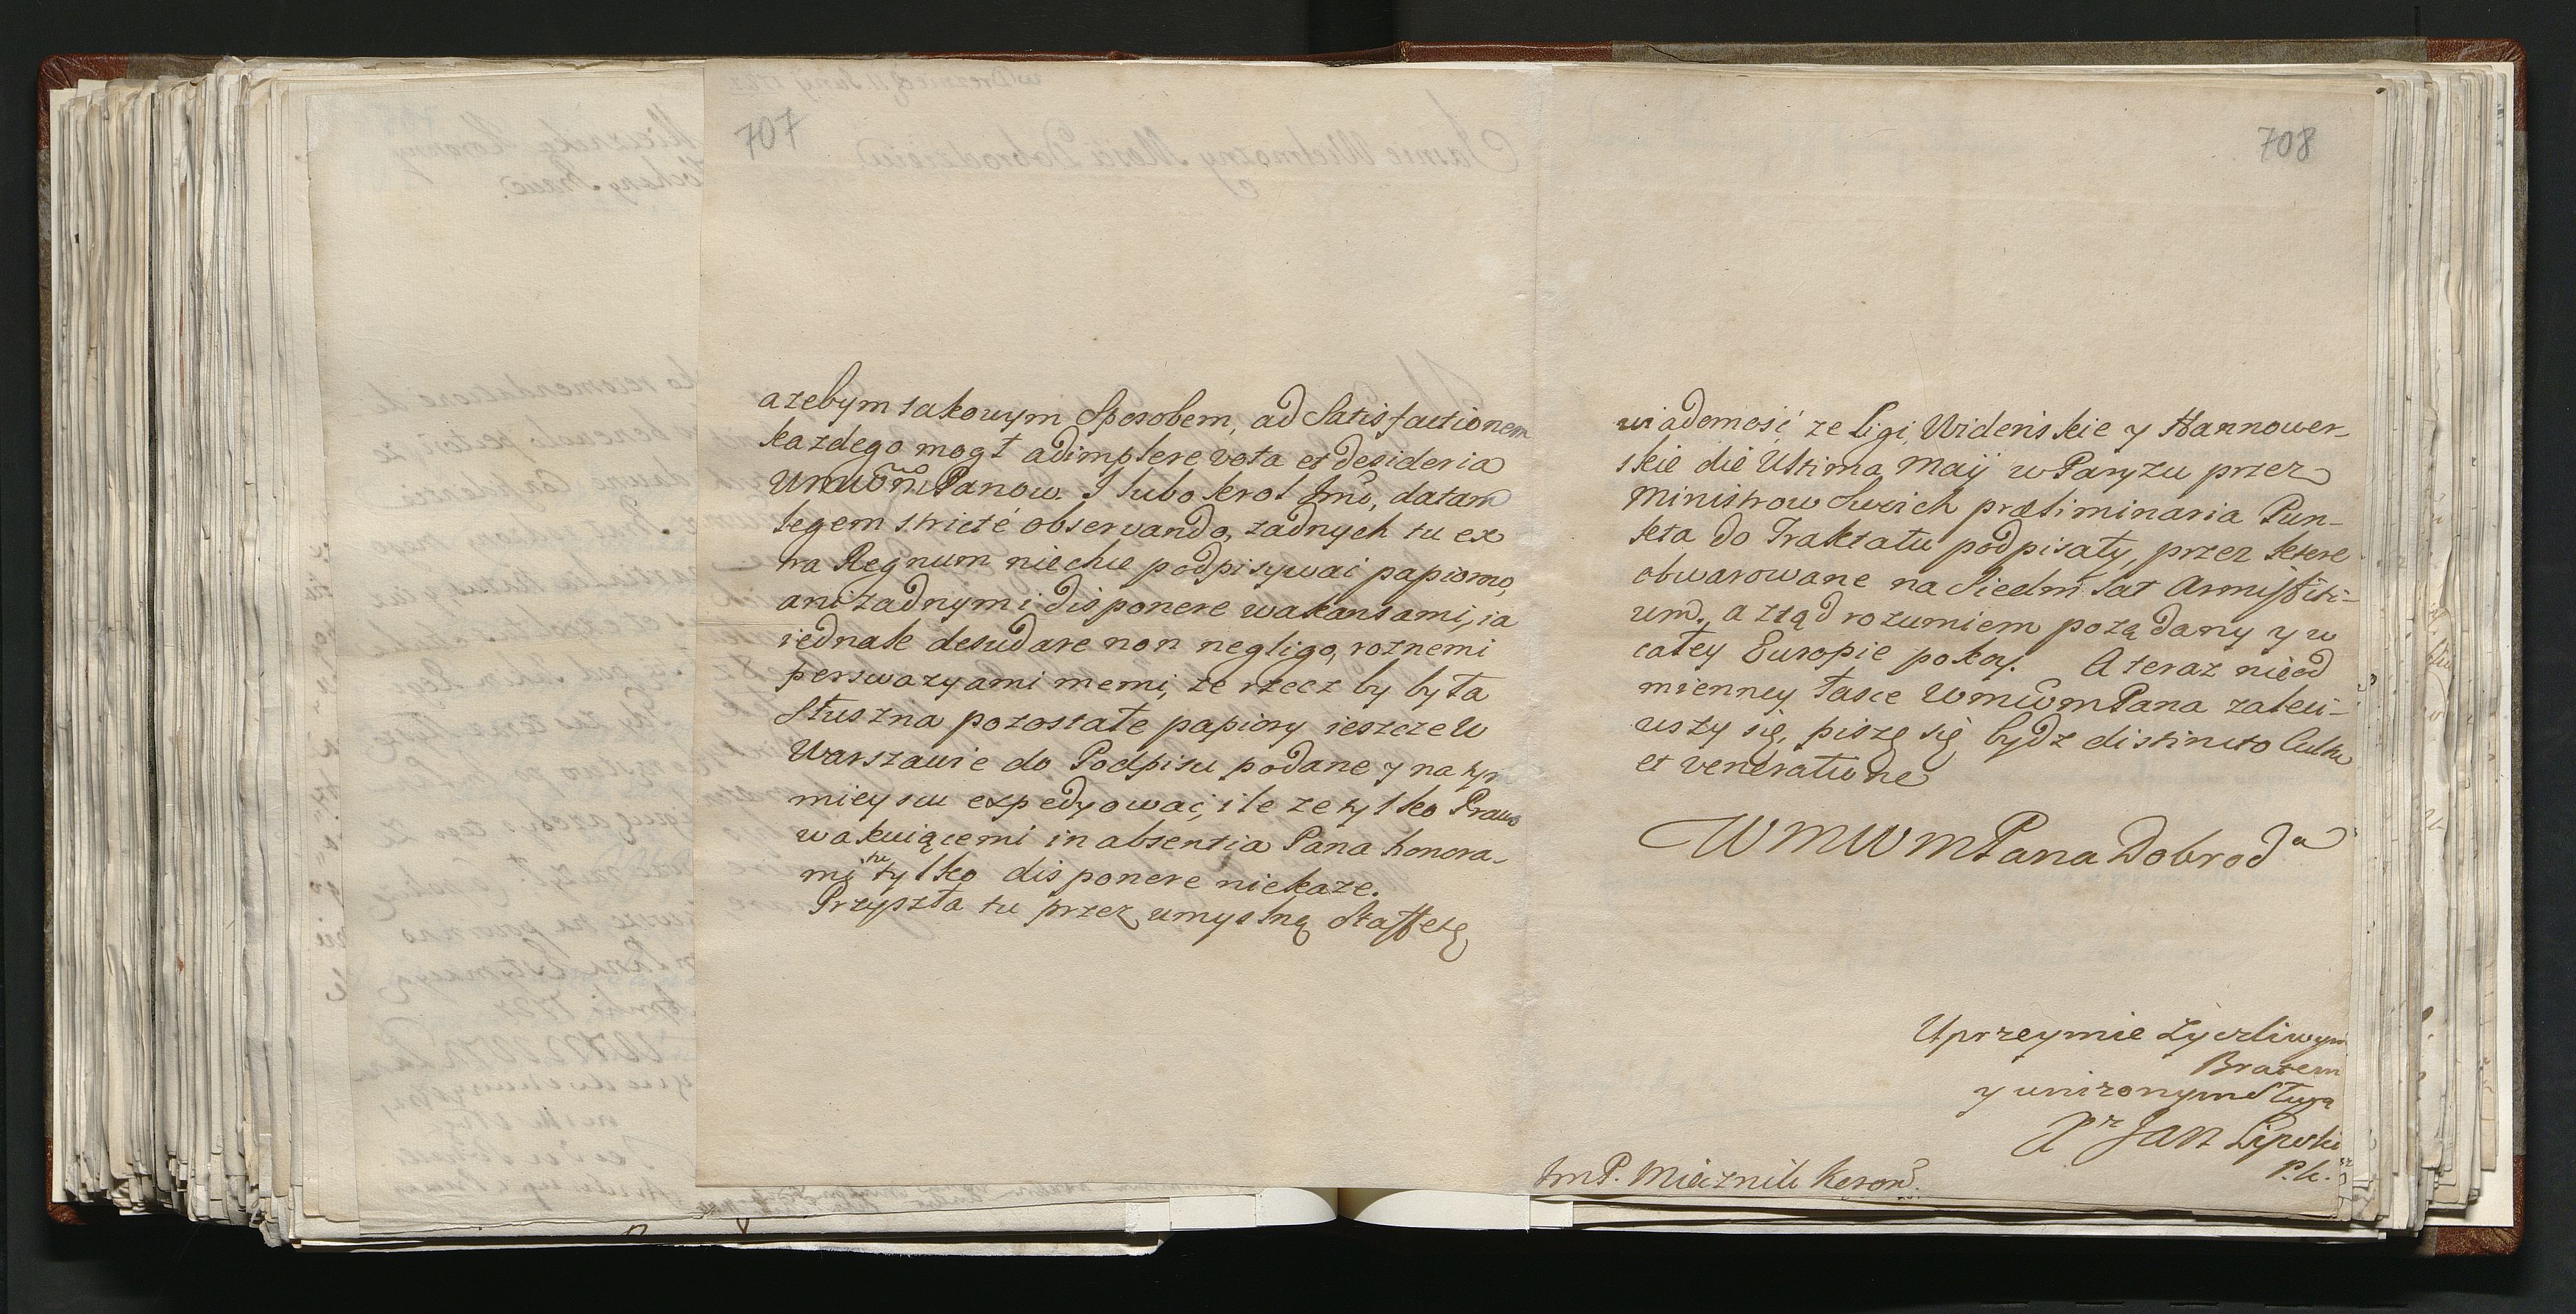 707
azebym takowym Sposobem, ad Satisfactionem
kazdego mogł adimplere vota et desideria
Panow. I lubo Krol Jmć, datam
legem stricté observando, zadnych tu ex
tra Regnum niechce podpisywać papiorow,
ani zadnymi disponere wakansami, ia
iednak desudare non negligo, roznemi
perswazyami memi, ze rzecz by była
Słuszna pozostałe papiory ieszcze w
Warszawie do Podpisu podane y na tym
mieyscu expedyować, ile ze tylko Prawo
wakuiącemi in absentia Pana honora-
mi tu tylko disponere niekaze.
Przyszła tu przez umyslną Sztaffetę
708
wiadomość ze Ligi, Widenskie y Hannower-
skie die Ultima Maij w Paryzu przez
Ministrow Swoich præliminaria Pun-
kta do Traktatu podpisały, przez ktere
obwarowane na Siedm lat Armistiti-
um, a ztąd rozumiem pozą dany y w
całey Europie pokoy. A teraz nieod
mienney łasce WmćwmPana zaleci-
wszy się, piszę się bydz distincto Cultu
et veneratione
WMWMPana Dobrodᵃ
Uprzeymie zyczliwym
Bratem
y unizonym Sługą
Xᶻ Jan Lipski
P.K.
JmP. Miecznik Koron.